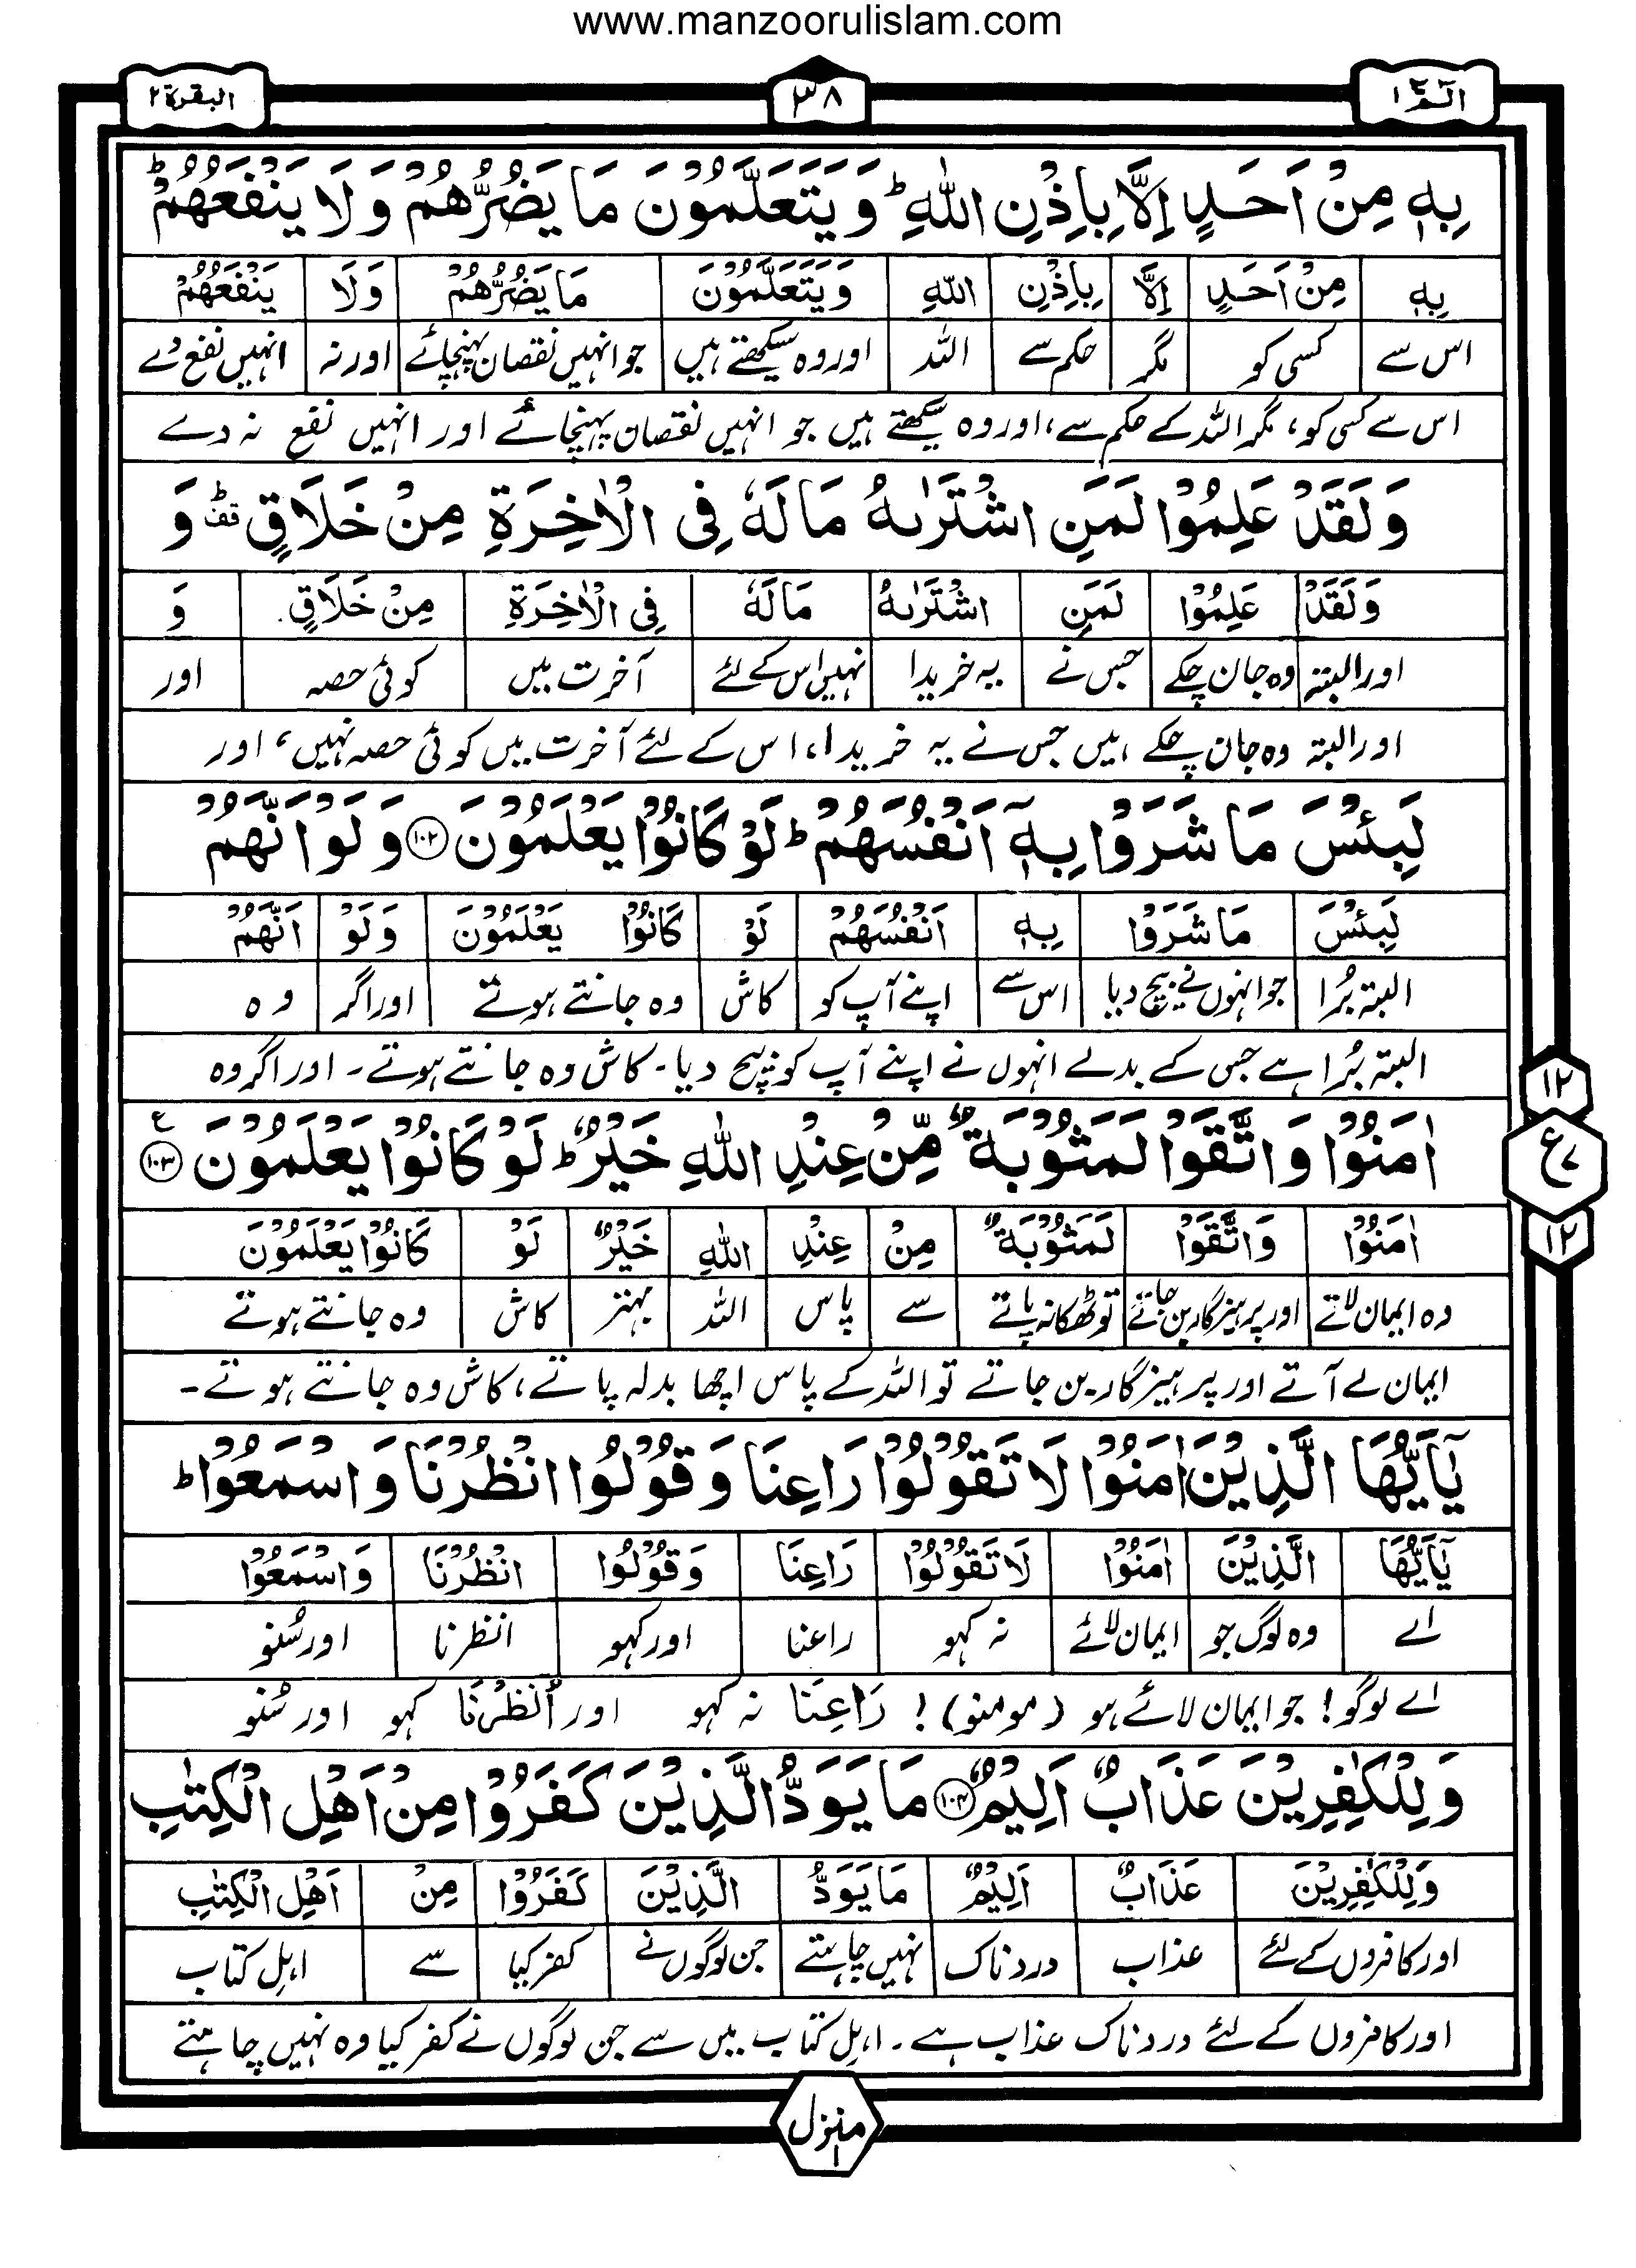 www.manzoorulislam.com
الٓمّٓ ١
٣٨
البقرة ٢
بِهٖ مِنْ اَحَدٍ اِلَّا بِاِذْنِ اللّٰهِ ؕ وَ يَتَعَلَّمُوْنَ مَا يَضُرُّهُمْ وَ لَا يَنْفَعُهُمْ ؕ
بِهٖ مِنْ اَحَدٍ اِلَّا بِاِذْنِ اللّٰهِ وَيَتَعَلَّمُوْنَ مَا يَضُرُّهُمْ وَلَا يَنْفَعُهُمْ
اس سے کسی کو مگر حکم سے اللہ اور وہ سیکھتے ہیں جو انہیں نقصان پہنچائے اور نہ انہیں نفع دے
اس سے کسی کو، مگر اللہ کے حکم سے، اور وہ سیکھتے ہیں جو انہیں نقصان پہنچائے اور انہیں نفع نہ دے
وَ لَقَدْ عَلِمُوْا لَمَنِ اشْتَرٰىهُ مَا لَهٗ فِی الْاٰخِرَةِ مِنْ خَلَاقٍ ؕ قف وَ
وَلَقَدْ عَلِمُوْا لَمَنِ اشْتَرٰىهُ مَا لَهٗ فِی الْاٰخِرَةِ مِنْ خَلَاقٍ وَ
اور البتہ وہ جان چکے جس نے یہ خریدا نہیں اس کے لئے آخرت میں کوئی حصہ اور
اور البتہ وہ جان چکے ہیں جس نے یہ خریدا، اس کے لئے آخرت میں کوئی حصہ نہیں، اور
لَبِئْسَ مَا شَرَوْا بِهٖۤ اَنْفُسَهُمْ ؕ لَوْ كَانُوْا يَعْلَمُوْنَ ١٠٢ وَ لَوْ اَنَّهُمْ
لَبِئْسَ مَا شَرَوْا بِهٖ اَنْفُسَهُمْ لَوْ كَانُوْا يَعْلَمُوْنَ وَلَوْ اَنَّهُمْ
البتہ بُرا جو انہوں نے بیچ دیا اس سے اپنے آپ کو کاش وہ جانتے ہوتے اور اگر وہ
البتہ بُرا ہے جس کے بدلے انہوں نے اپنے آپ کو بیچ دیا۔ کاش وہ جانتے ہوتے۔ اور اگر وہ
١٢
اٰمَنُوْا وَ اتَّقَوْا لَمَثُوْبَةٌ مِّنْ عِنْدِ اللّٰهِ خَيْرٌ ؕ لَوْ كَانُوْا يَعْلَمُوْنَ ١٠٣ ع
ع ٧
١٢
اٰمَنُوْا وَاتَّقَوْا لَمَثُوْبَةٌ مِنْ عِنْدِ اللّٰهِ خَيْرٌ لَوْ كَانُوْا يَعْلَمُوْنَ
وہ ایمان لاتے اور پرہیزگار بن جاتے تو ٹھکانہ پاتے سے پاس اللہ بہتر کاش وہ جانتے ہوتے
ایمان لے آتے اور پرہیزگار بن جاتے تو اللہ کے پاس اچھا بدلہ پاتے، کاش وہ جانتے ہوتے۔
يٰۤاَيُّهَا الَّذِيْنَ اٰمَنُوْا لَا تَقُوْلُوْا رَاعِنَا وَ قُوْلُوا انْظُرْنَا وَ اسْمَعُوْا ؕ
يٰۤاَيُّهَا الَّذِيْنَ اٰمَنُوْا لَا تَقُوْلُوْا رَاعِنَا وَقُوْلُوا انْظُرْنَا وَاسْمَعُوْا
اے وہ لوگ جو ایمان لائے نہ کہو راعنا اور کہو انظرنا اور سُنو
اے لوگو! جو ایمان لائے ہو (مومنو)! رَاعِنَا نہ کہو اور اُنْظُرْنَا کہو اور سُنو
وَ لِلْكٰفِرِيْنَ عَذَابٌ اَلِيْمٌ ١٠٤ مَا يَوَدُّ الَّذِيْنَ كَفَرُوْا مِنْ اَهْلِ الْكِتٰبِ
وَلِلْكٰفِرِيْنَ عَذَابٌ اَلِيْمٌ مَا يَوَدُّ الَّذِيْنَ كَفَرُوْا مِنْ اَهْلِ الْكِتٰبِ
اور کافروں کے لئے عذاب دردناک نہیں چاہتے جن لوگوں نے کفر کیا سے اہلِ کتاب
اور کافروں کے لئے دردناک عذاب ہے۔ اہلِ کتاب میں سے جن لوگوں نے کفر کیا وہ نہیں چاہتے
منزل ١